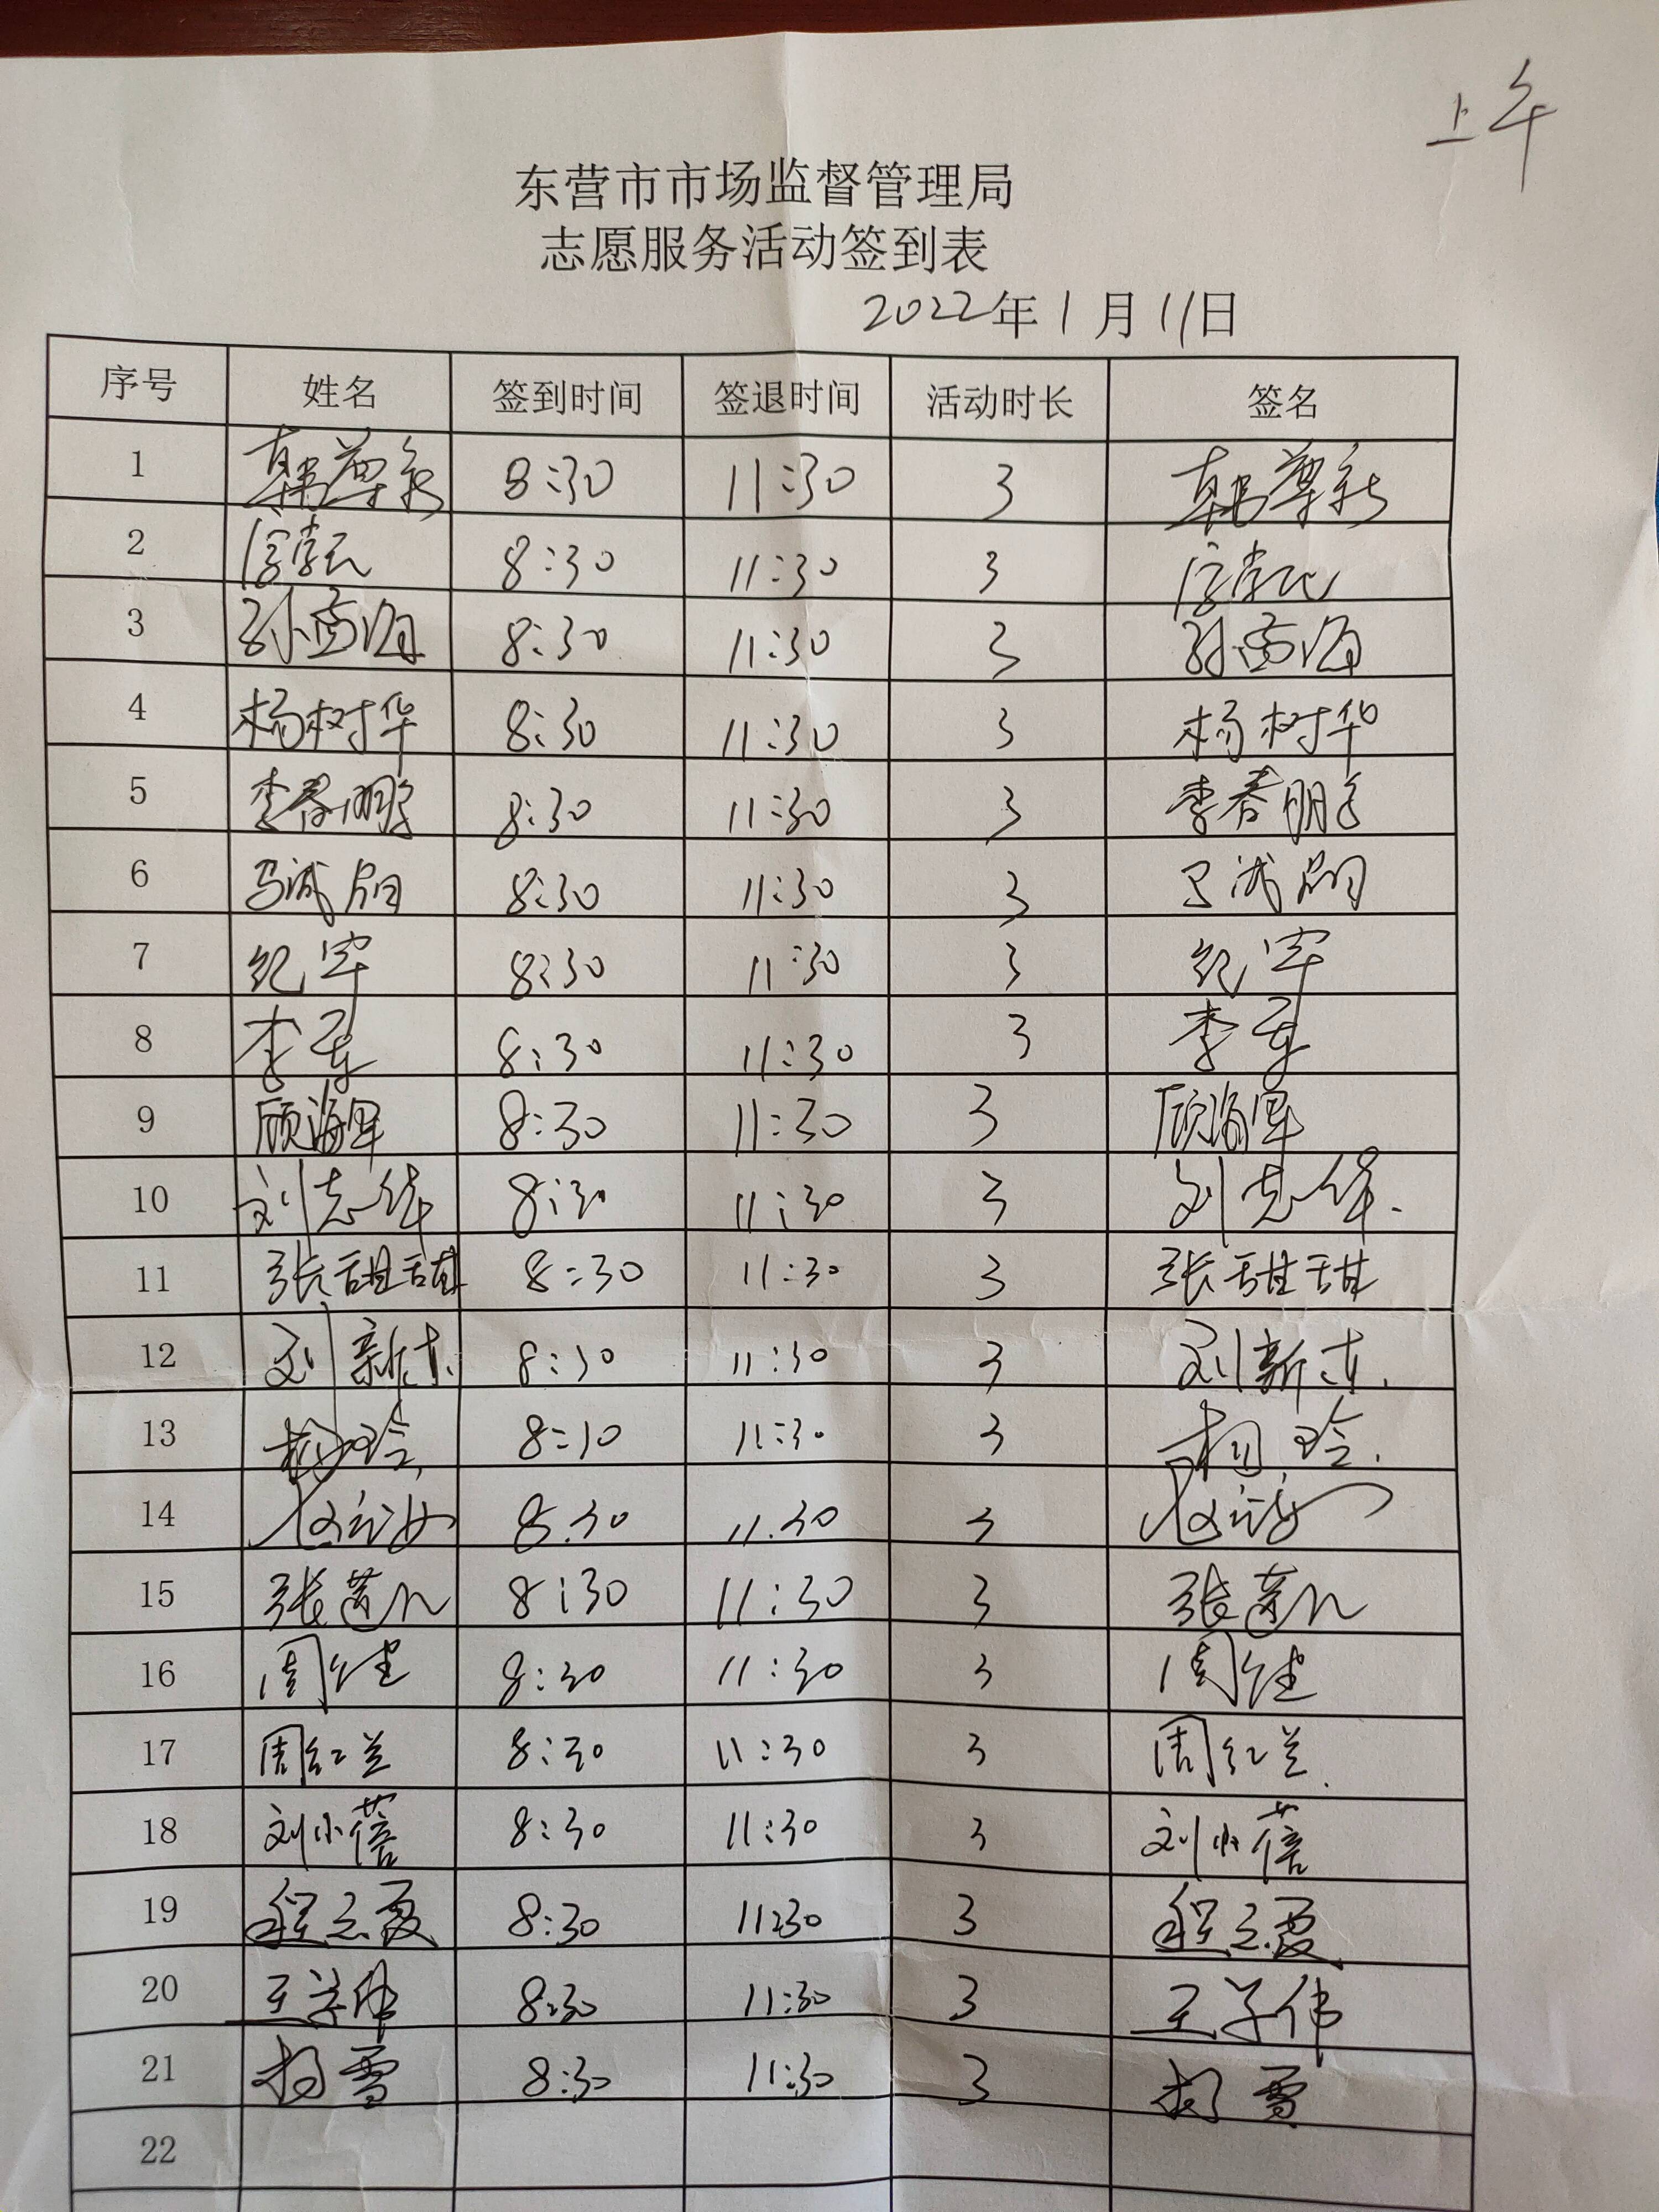 上午
东营市市场监督管理局
志愿服务活动签到表
2022年1月11日
序号 姓名 签到时间 签退时间 活动时长 签名
1 韩尊新 8:30 11:30 3 韩尊新
2 8:30 11:30 3
3 8:30 11:30 3
4 杨树华 8:30 11:30 3 杨树华
5 李春鹏 8:30 11:30 3 李春鹏
6 马诚 8:30 11:30 3 马诚
7 纪军 8:30 11:30 3 纪军
8 李军 8:30 11:30 3 李军
9 顾海军 8:30 11:30 3 顾海军
10 刘志华 8:30 11:30 3 刘志华.
11 张甜甜 8:30 11:30 3 张甜甜
12 刘新 8:30 11:30 3 刘新
13 玲 8:10 11:30 3 玲.
14 8:30 11:30 3
15 张 8:30 11:30 3 张
16 周健 8:30 11:30 3 周健
17 周红兰 8:30 11:30 3 周红兰
18 刘小蓓 8:30 11:30 3 刘小蓓
19 程云霞 8:30 11:30 3 程云霞
20 王学伟 8:30 11:30 3 王学伟
21 杨雪 8:30 11:30 3 杨雪
22